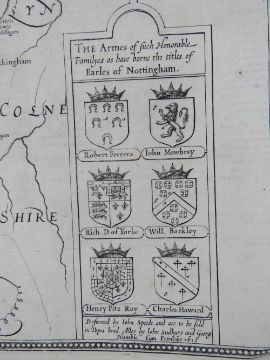 YN
kingham
COLNE
SHIRE
THE Armes of such Honorable
Familyes as have borne the titles of
Earles of Nottingham.
Robert Ferrers
Iohn Mowbray
Rich. D. of Yorke
Will. Barkley
Henry Fitz Roy
Charles Howard
Performed by Iohn Speede and are to be sold
in Popes head Alley by Iohn Sudbury and Georg
Humble Cum Privilegio